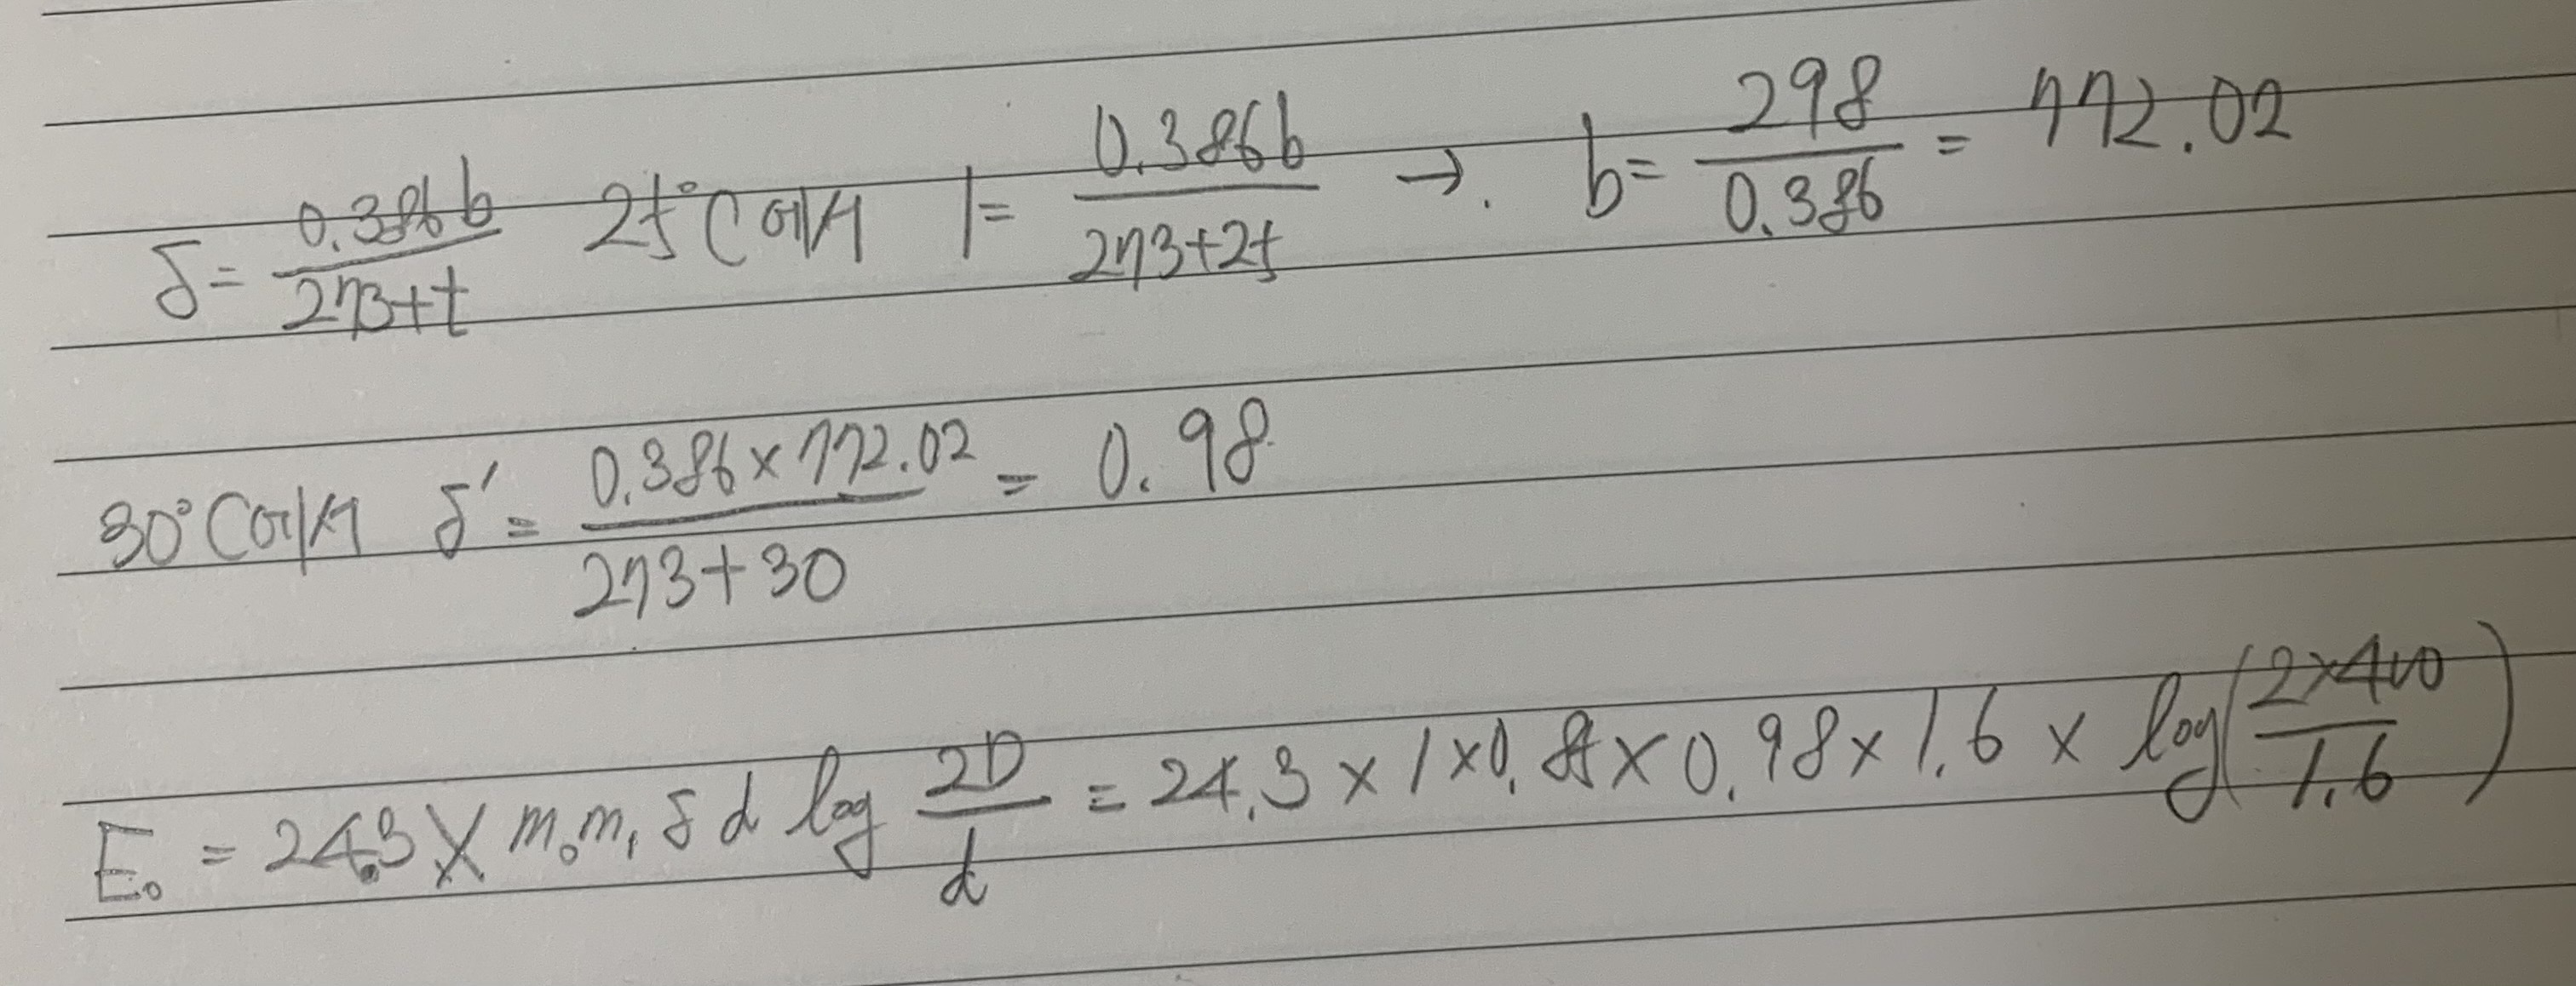 δ = 0.386b / 273+t 25°C에서 1 = 0.386b / 273+25 → b = 298 / 0.386 = 772.02
30°C에서 δ' = 0.386×772.02 / 273+30 = 0.98
E₀ = 24.3 × m₀m₁δd log 2D / d = 24.3 × 1 × 0. × 0.98 × 1.6 × log(2×400 / 1.6)